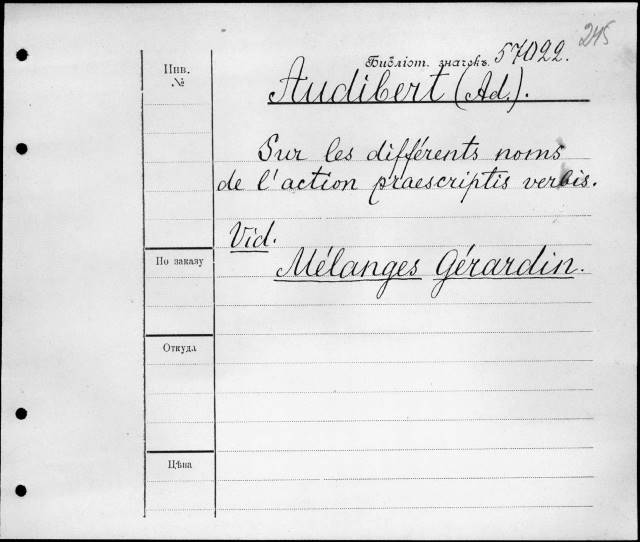 245
Библіот. значекъ. 57022.
Инв.
№
Audibert (Ad.).
Sur les différents noms
de l'action praescriptis verbis.
Vid.
По заказу
Mélanges Gérardin.
Откуда
Цѣна